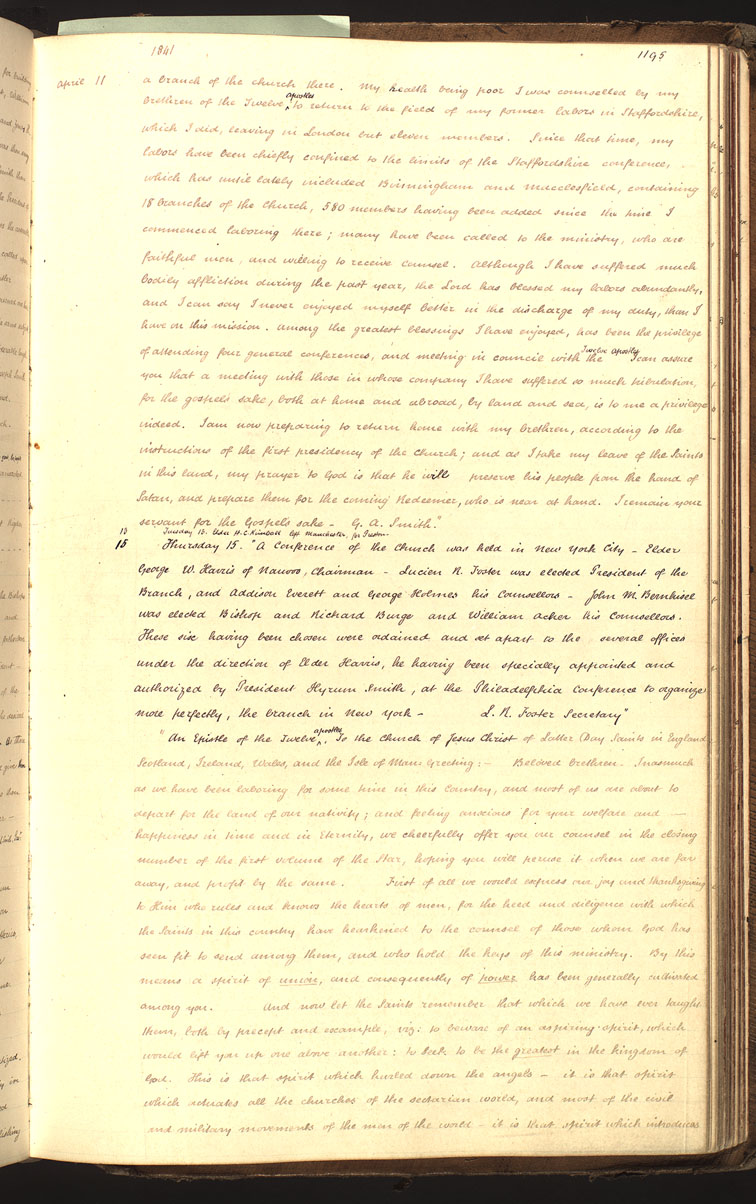 1841
1195
April 11 a branch of the church there. My health being poor I was counselled by my
brethren of the Twelve, apostles to return to the field of my former labors in Staffordshire,
which I did, leaving in London but eleven members. Since that time, my
labors have been chiefly confined to the limits of the Staffordshire conference,
which has until lately included Birmingham and Macclesfield, containing
18 branches of the Church, 580 members having been added since the time I
commenced laboring there; many have been called to the ministry, who are
faithful men, and willing to receive counsel. Although I have suffered much
bodily affliction during the past year, the Lord has blessed my labors abundantly,
and I can say I never enjoyed myself better in the discharge of my duty, than I
have on this mission. Among the greatest blessings I have enjoyed, has been the privilege
of attending four general conferences, and meeting in council with the Twelve apostles I can assure
you that a meeting with those in whose company I have suffered so much tribulation,
for the gospel's sake, both at home and abroad, by land and sea, is to me a privilege
indeed. I am now preparing to return home with my brethren, according to the
instructions of the first presidency of the Church; and as I take my leave of the Saints
in this land, my prayer to God is that he will preserve his people from the hand of
Satan, and prepare them for the coming Redeemer, who is near at hand. I remain your
servant for the Gospels sake – G. A. Smith."
13 Tuesday 13. Elder H. C. Kimball left Manchester, for Preston
15 Thursday 15. "A Conference of the Church was held in New York City – Elder
George W. Harris of Nauvoo, Chairman – Lucien R. Foster was elected President of the
Branch, and Addison Everett and George Holmes his Counsellors – John M. Bernhisel
was elected Bishop and Richard Burge and William Acker his Counsellors.
These six having been chosen were ordained and set apart to the several offices
under the direction of Elder Harris, he having been specially appointed and
authorized by President Hyrum Smith, at the Philadelphia Conference to organize
more perfectly, the branch in New York – L. R. Foster Secretary"
"An Epistle of the Twelve apostles. To the Church of Jesus Christ of Latter Day Saints in England
Scotland, Ireland, Wales, and the Isle of Man: Greeting: – Beloved brethren – Inasmuch
as we have been laboring for some time in this Country, and most of us are about to
depart for the land of our nativity; and feeling anxious for your welfare and —
happiness in time and in Eternity, we cheerfully offer you our counsel in the closing
number of the first volume of the Star, hoping you will peruse it when we are far
away, and profit by the same. First of all we would express our joy and thanksgiving
to Him who rules and knows the hearts of men, for the heed and diligence with which
the Saints in this country have hearkened to the counsel of those whom God has
seen fit to send among them, and who hold the keys of this ministry. By this
means a spirit of union, and consequently of power has been generally cultivated
among you. And now let the Saints remember that which we have ever taught
them, both by precept and example, viz: to beware of an aspiring spirit, which
would lift you up one above another: to seek to be the greatest in the kingdom of
God. This is that spirit which hurled down the angels – it is that spirit
which actuates all the churches of the sectarian world, and most of the civil
and military movements of the men of the world – it is that spirit which introduces